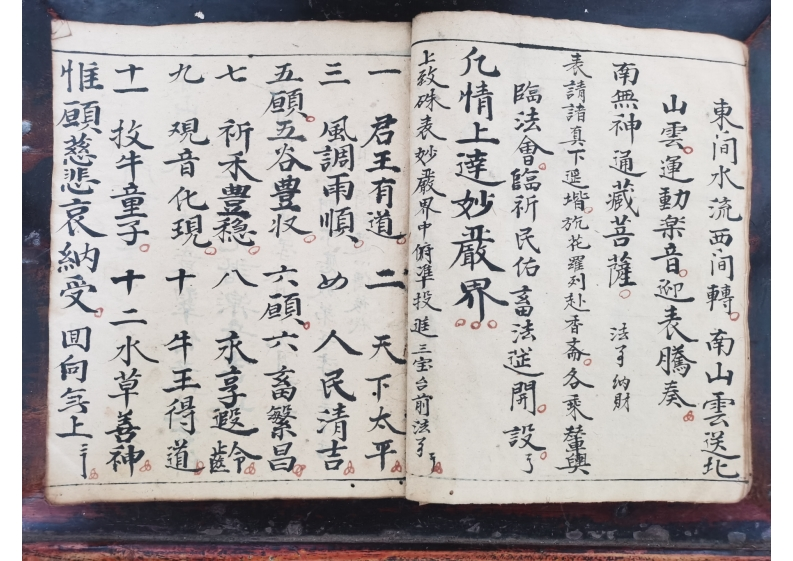 東澗水流西澗轉南山雲送北
山雲運動楽音迎表騰奏
南無神通藏菩薩 法了納財
表請諸真下遥堦旒花羅列赴香斋各乘輦輿
臨法會臨祈民佑畜法筵開設了
凢情上達妙嚴界
上致硃表妙嚴界中俯凖投進三宝台前法了
一 君王有道 二 天下太平
三 風調雨順 め 人民清吉
五願五谷豊収 六願六畜繁昌
七 祈禾豊穏 八 永享遐齡
九 观音化現 十 牛王得道
十一 牧牛童子 十二水草善神
惟願慈悲哀納受 回向无上